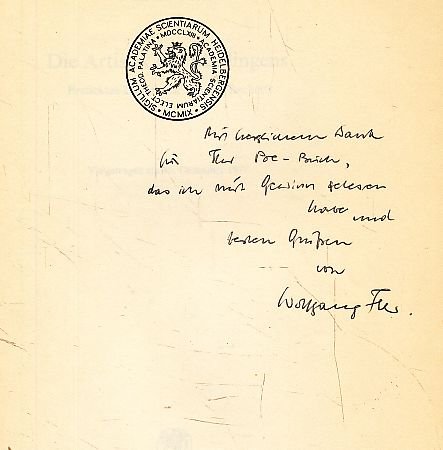 SIGILLUM ACADEMIAE SCIENTIARUM HEIDELBERGENSIS • MCMIX •
ACADEMIA SCIENTIARUM ELECT. THEOD. PALATINA • MDCCLXIII •
Mit herzlichem Dank
für Ihr Poe-Buch,
das ich mit Gewinn gelesen
habe und
besten Grüßen
von
Wolfgang